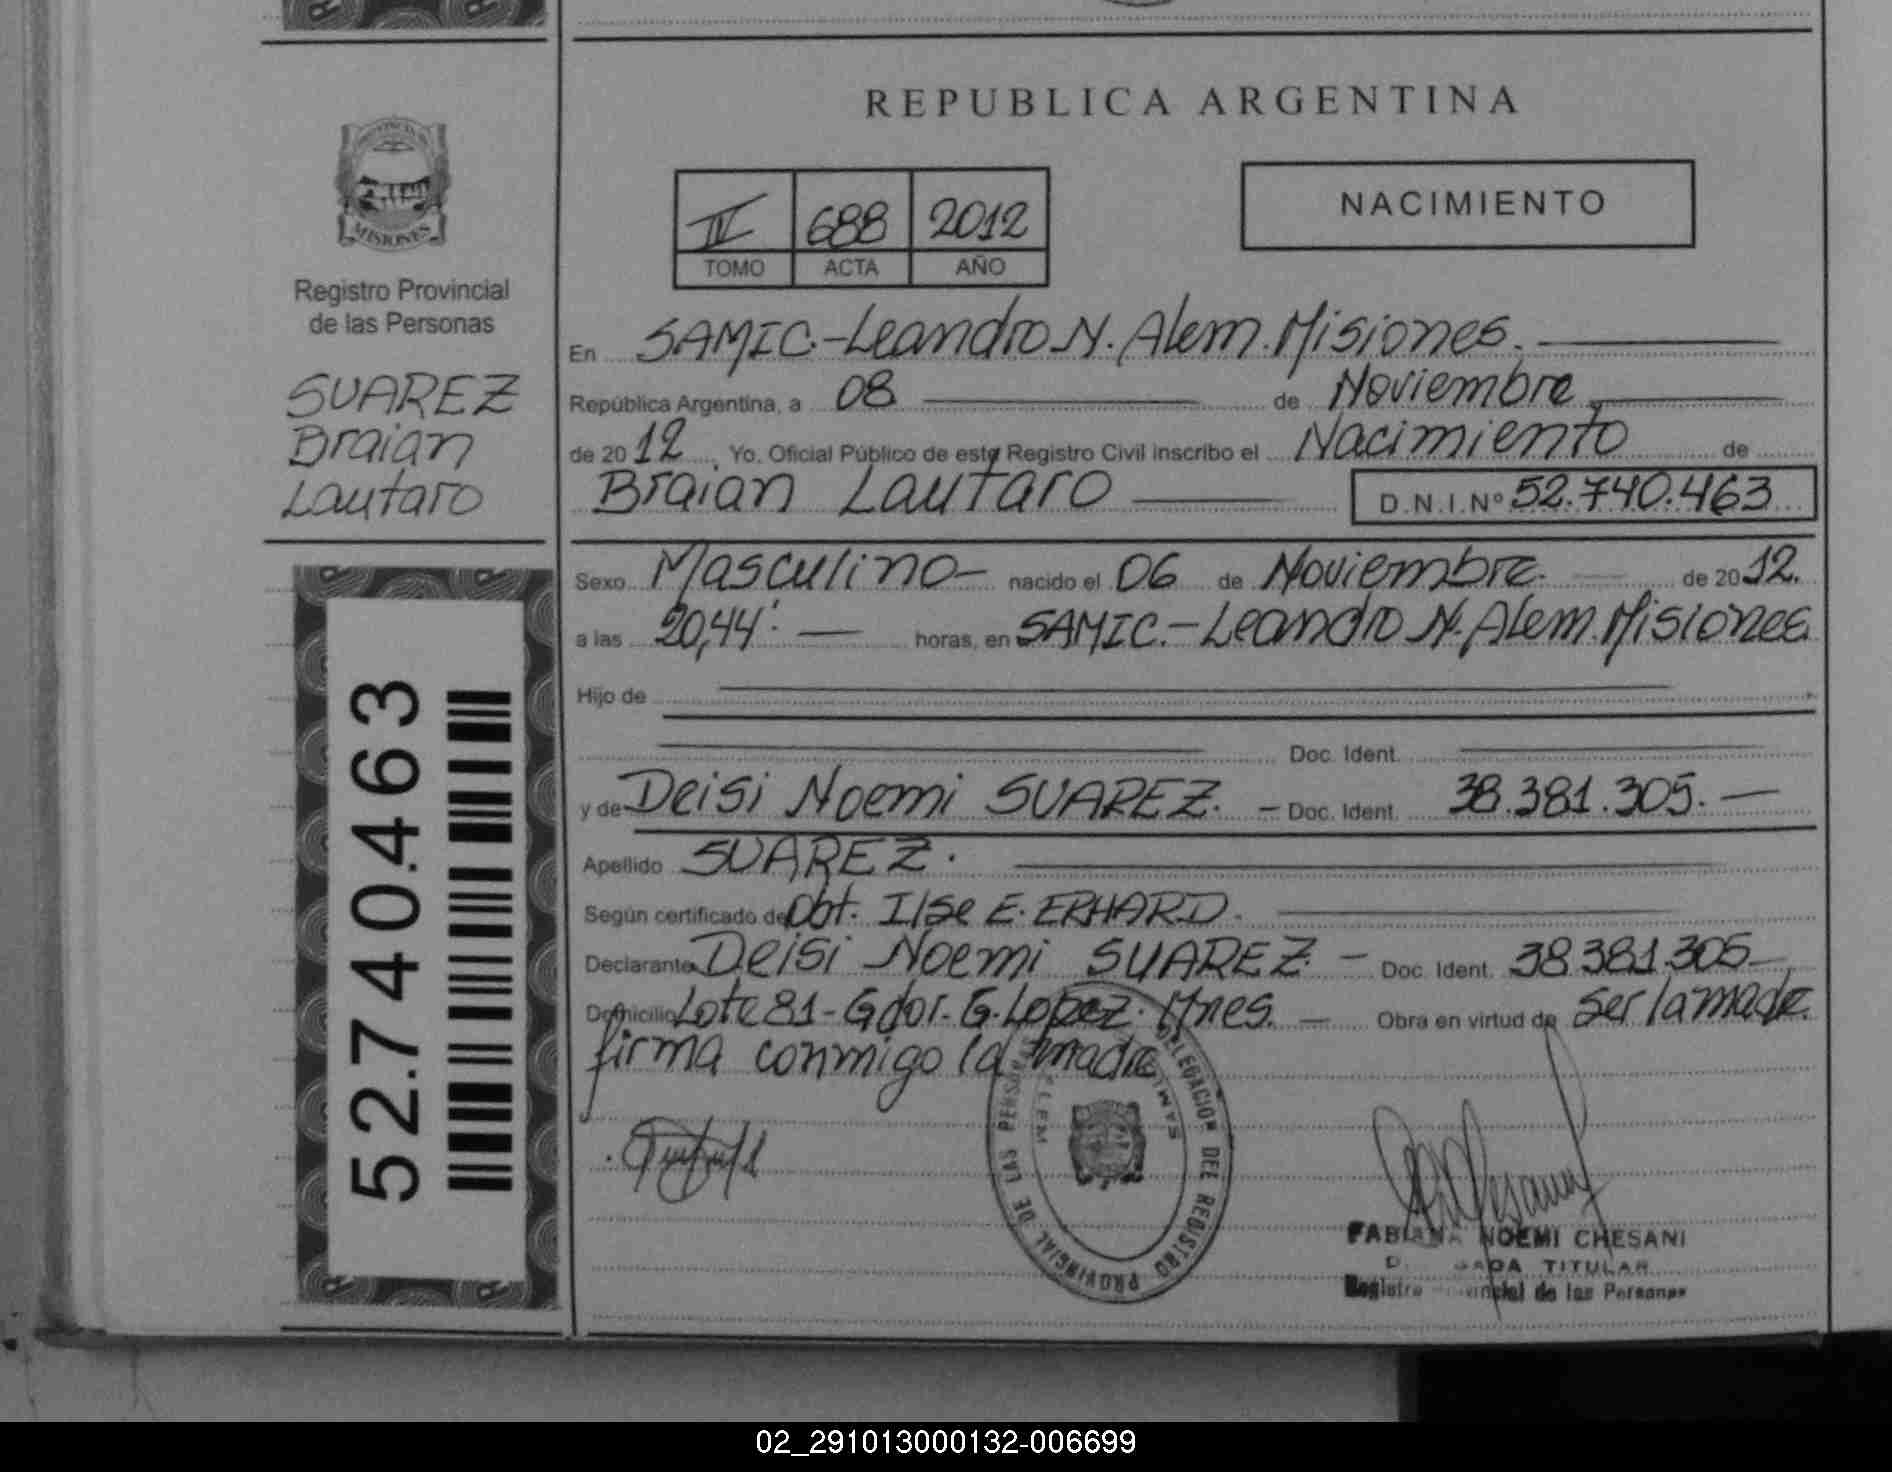 PROVINCIA DE
MISIONES
Registro Provincial
de las Personas
SUAREZ
Braian
Lautaro
52.740.463
REPUBLICA ARGENTINA
IV 688 2012
TOMO ACTA AÑO
NACIMIENTO
En SAMIC.-Leandro N. Alem. Misiones.
República Argentina, a 08 de Noviembre
de 2012, Yo, Oficial Público de este Registro Civil inscribo el Nacimiento de
Braian Lautaro D.N.I.Nº 52.740.463
Sexo Masculino- nacido el 06 de Noviembre. de 2012.
a las 20,44': horas, en SAMIC.-Leandro N. Alem. Misiones
Hijo de
Doc. Ident.
y de Deisi Noemi SUAREZ. - Doc. Ident. 38.381.305. -
Apellido SUAREZ.
Según certificado de Obt. Ilse E. ERHARD.
Declarante Deisi Noemi SUAREZ. - Doc. Ident. 38.381.305-
Domicilio Lote 81-Gdor. G. Lopez. Mnes. - Obra en virtud de ser la madre.
firma conmigo la madre
DELEGACION DEL REGISTRO PROVINCIAL DE LAS PERSONAS
ALEM
FABIANA NOEMI CHESANI
TITULAR
Registro Provincial de las Personas
02_291013000132-006699